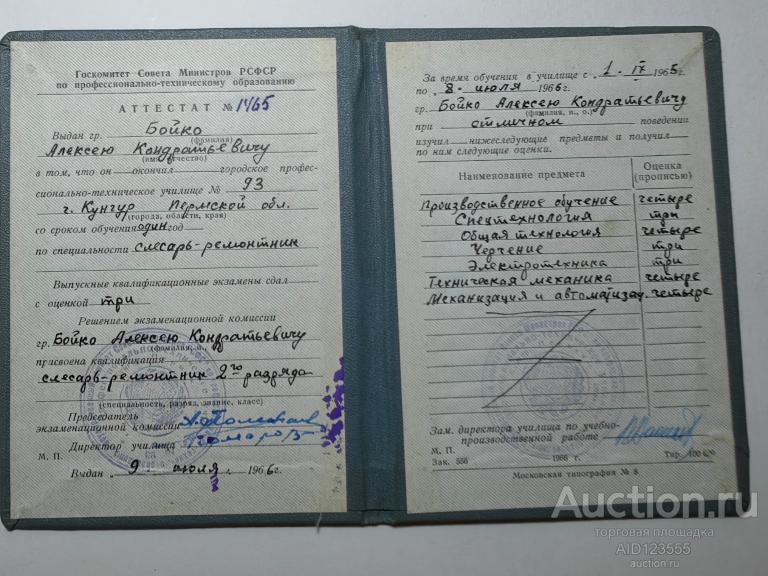 Госкомитет Совета Министров РСФСР
по профессионально-техническому образованию
АТТЕСТАТ № 1465
Выдан гр. Бойко
(фамилия)
Алексею Кондратьевичу
(имя, отчество)
в том, что он окончил городское профес-
сионально-техническое училище № 93
г. Кунгур Пермской обл.
(города, области, края)
со сроком обучения один год
по специальности слесарь-ремонтник
Выпускные квалификационные экзамены сдал
с оценкой три
Решением экзаменационной комиссии
гр. Бойко Алексею Кондратьевичу
(фамилия, и.,
присвоена квалификация
слесарь-ремонтник 2го разряда
(специальность, разряд, звание, класс)
Председатель
экзаменационной комиссии
Директор училища
М. П.
Выдан 9. июля. 1966г.
За время обучения в училище с 1. IX 1965г.
по 8. июля 1966г.
гр. Бойко Алексею Кондратьевичу
(фамилия, и., о.)
при отличном поведении
изучил нижеследующие предметы и получил
по ним следующие оценки.
Наименование предмета Оценка (прописью)
Производственное обучение четыре
Спецтехнология три
Общая технология четыре
Черчение три
Электротехника три
Техническая механика четыре
Механизация и автоматизац. четыре
Зам. директора училища по учебно-
производственной работе
М. П.
Зак. 556 1966 г. Тир. 100 000
Московская типография № 8
Auction.ru
торговая площадка
AID123555
auction.ru